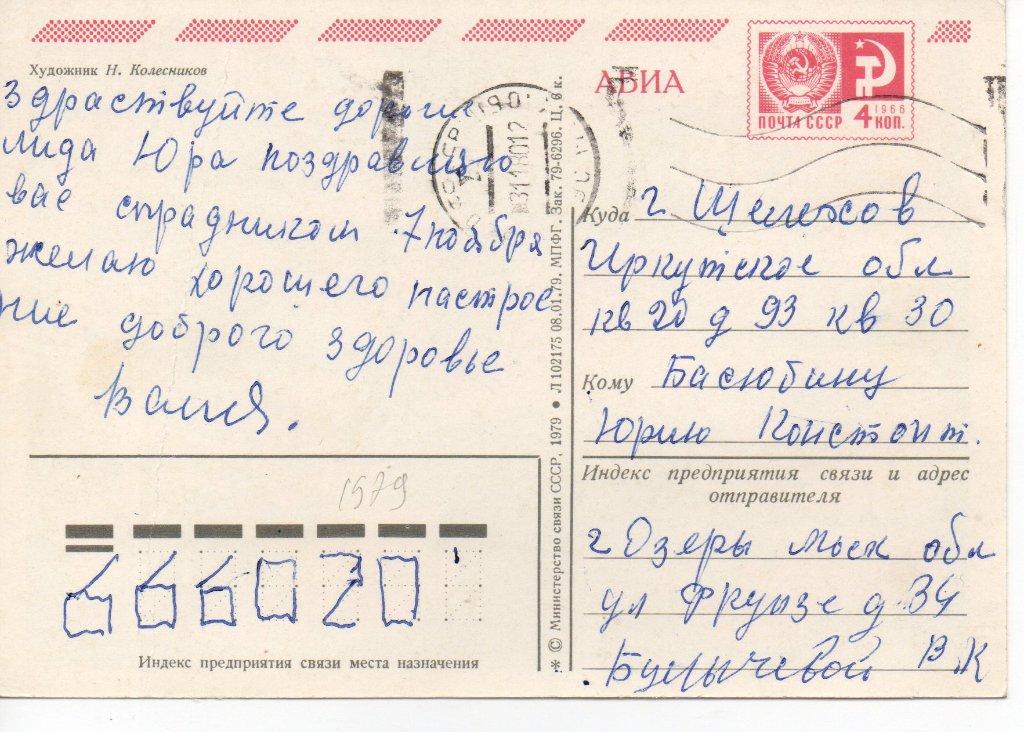 Художник Н. Колесников
Здраствуйте дорогие
Лида Юра поздравляю
вас спрадником 7 ноября
желаю хорошего настрое
ние доброго здоровье
Валя.
АВИА
ПОЧТА СССР
1966
4 КОП.
Куда г. Шелехов
Иркутское обл
кв 20 д 93 кв 30
Кому Басюбину
Юрию Констант.
Индекс предприятия связи и адрес
отправителя
г Озеры моск обл
ул Фрунзе д 34
Булычевой В.К
1979
666030
Индекс предприятия связи места назначения
* © Министерство связи СССР, 1979 ● Л 102175 08.01.79. МПФГ. Зак. 79-6296. Ц. 6 к.